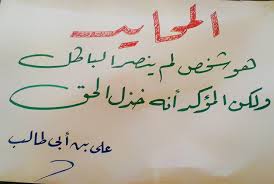 المحايد
هو شخص لم ينصر الباطل
ولكن المؤكد أنه خذل الحق
علي بن أبي طالب